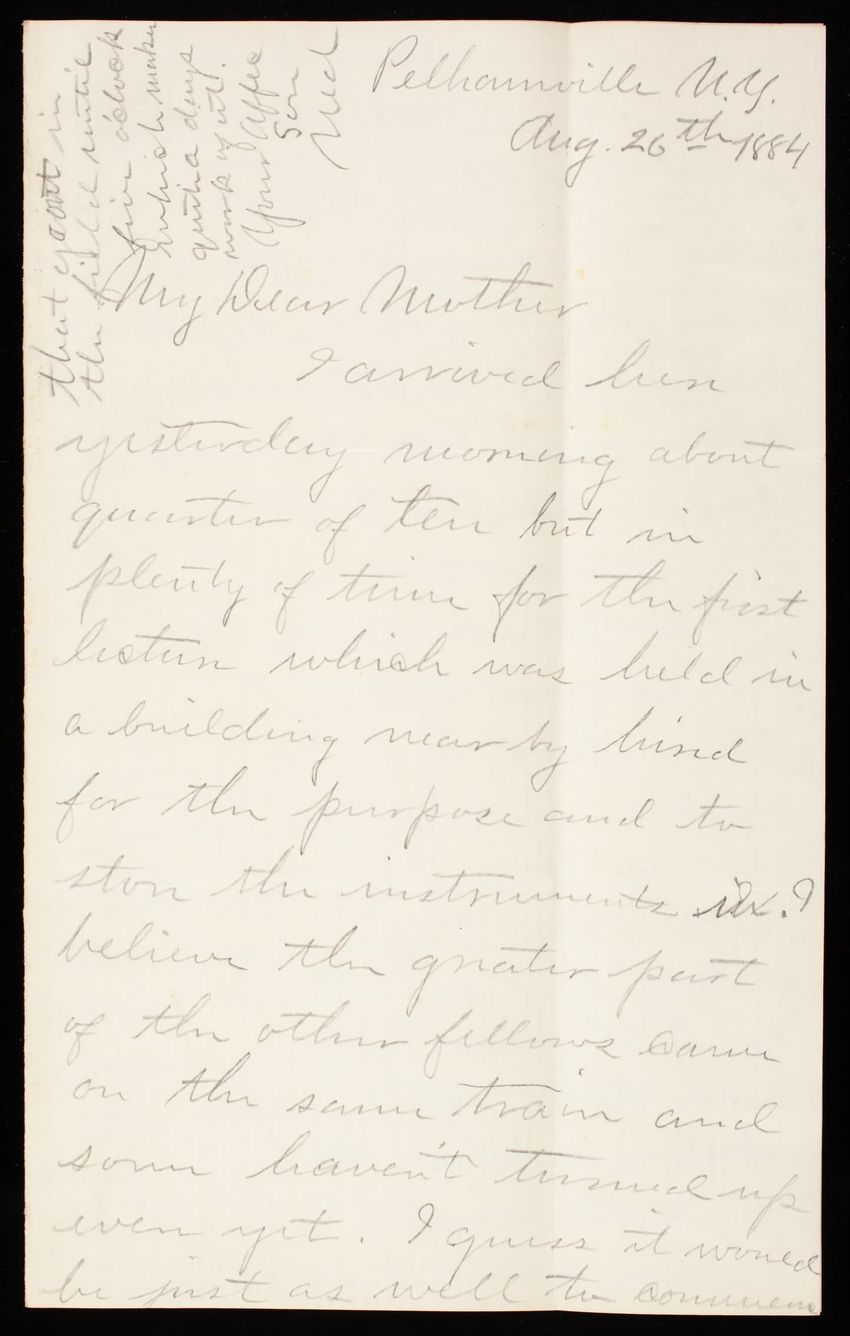 Pelhamville N.Y.
Aug. 26th 1884
My Dear Mother
I arrived here
yesterday morning about
quarter of ten but in
plenty of time for the first
lecture which was held in
a building near by hired
for the purpose and to
store the instruments in. I
believe the greater part
of the other fellows came
on the same train and
some haven't turned up
even yet. I guess it would
be just as well to commence
that yoant in
the field until
five o'clock
which makes
quite a days
work of it.
Your affec
Son
Ned